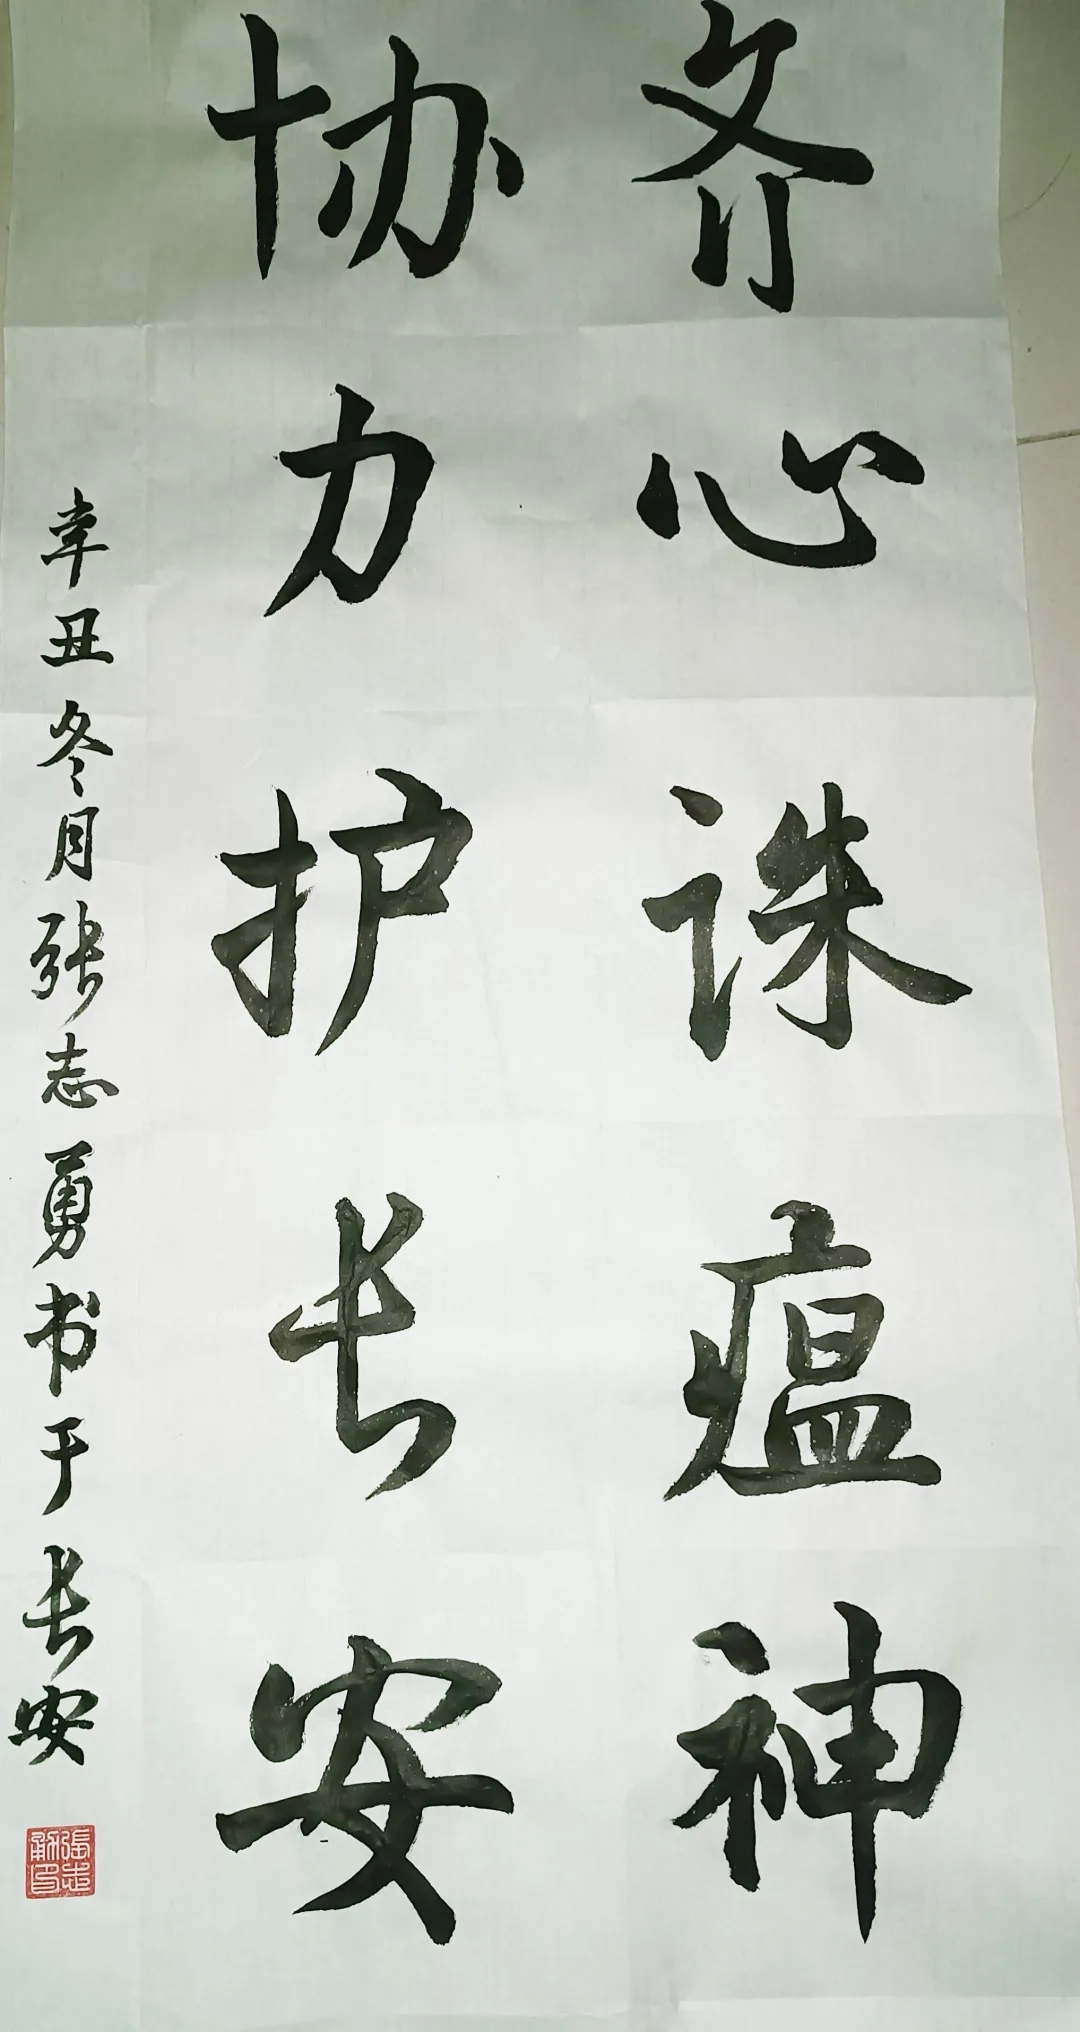 齐心诛瘟神
协力护长安
辛丑冬月张志勇书于长安
張志勇印